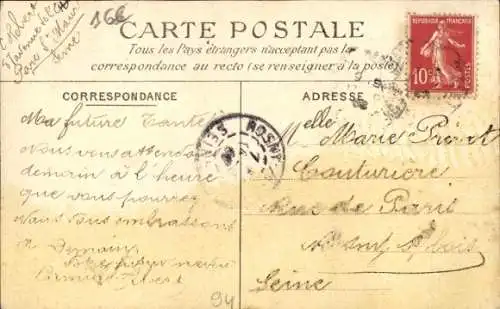 166
CARTE POSTALE
Tous les Pays étrangers n'acceptent pas la
correspondance au recto (se renseigner à la poste)
REPUBLIQUE FRANÇAISE
10c
POSTES
CORRESPONDANCE
Ma future Tante
Nous vous attendons
demain à l'heure
que vous pourrez
Nous vous embrassons
à Demain
Votre futur neveu
ROSNY
ADRESSE
Melle Marie
Couturière
Rue de Paris
Rosny s/Bois
Seine
94